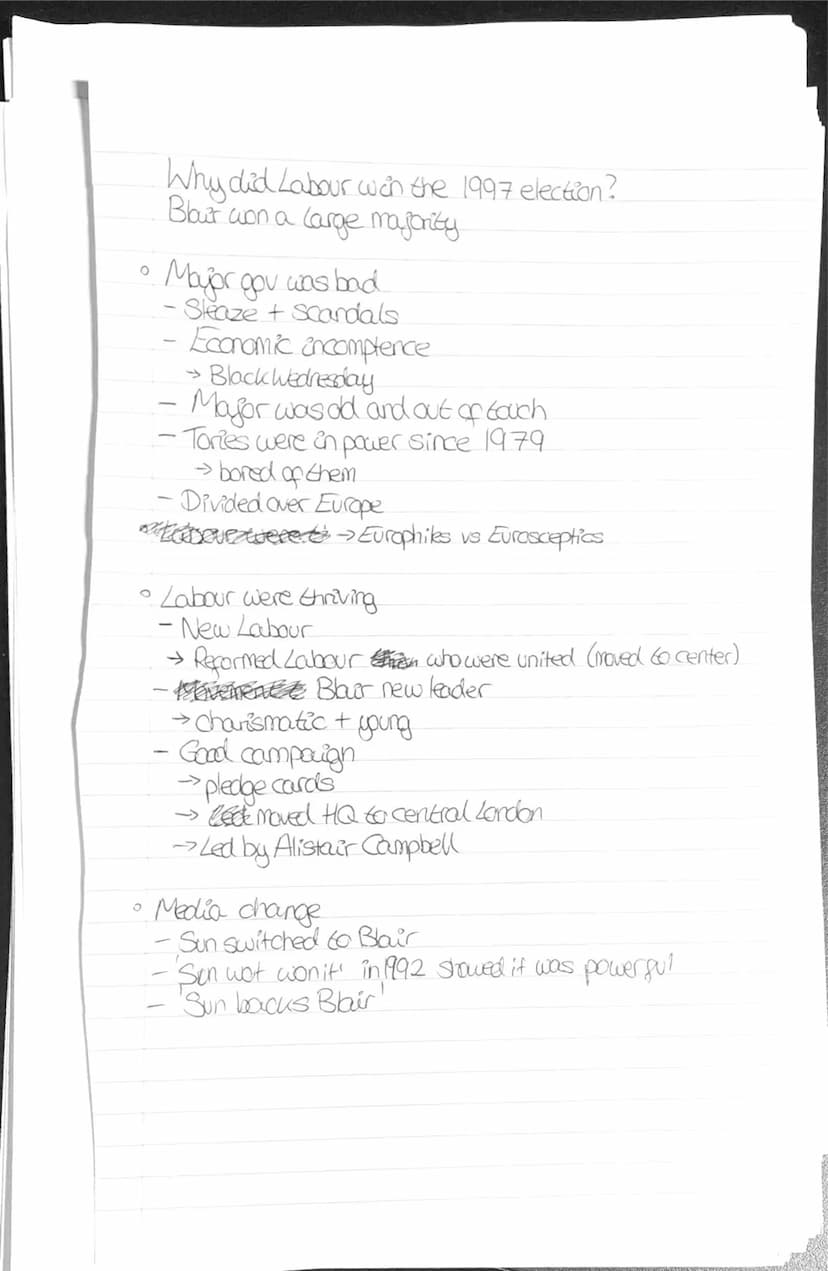 Why did Labour win the 1997 election?
Blair won a large majority
◦ Major gov was bad
- Sleaze + scandals
- Economic incomptence
→ Black Wednesday
- Major was old and out of touch
- Tories were in power since 1979
→ bored of them
- Divided over Europe
→ Europhiles vs Eurosceptics
◦ Labour were thriving
- New Labour
→ Reformed Labour who were united (moved to center)
- Blair new leader
→ charismatic + young
- Good campaign
→ pledge cards
→ moved HQ to central London
→ Led by Alistair Campbell
◦ Media change
- Sun switched to Blair
- 'Sun wot won it' in 1992 showed it was powerful
- 'Sun backs Blair'